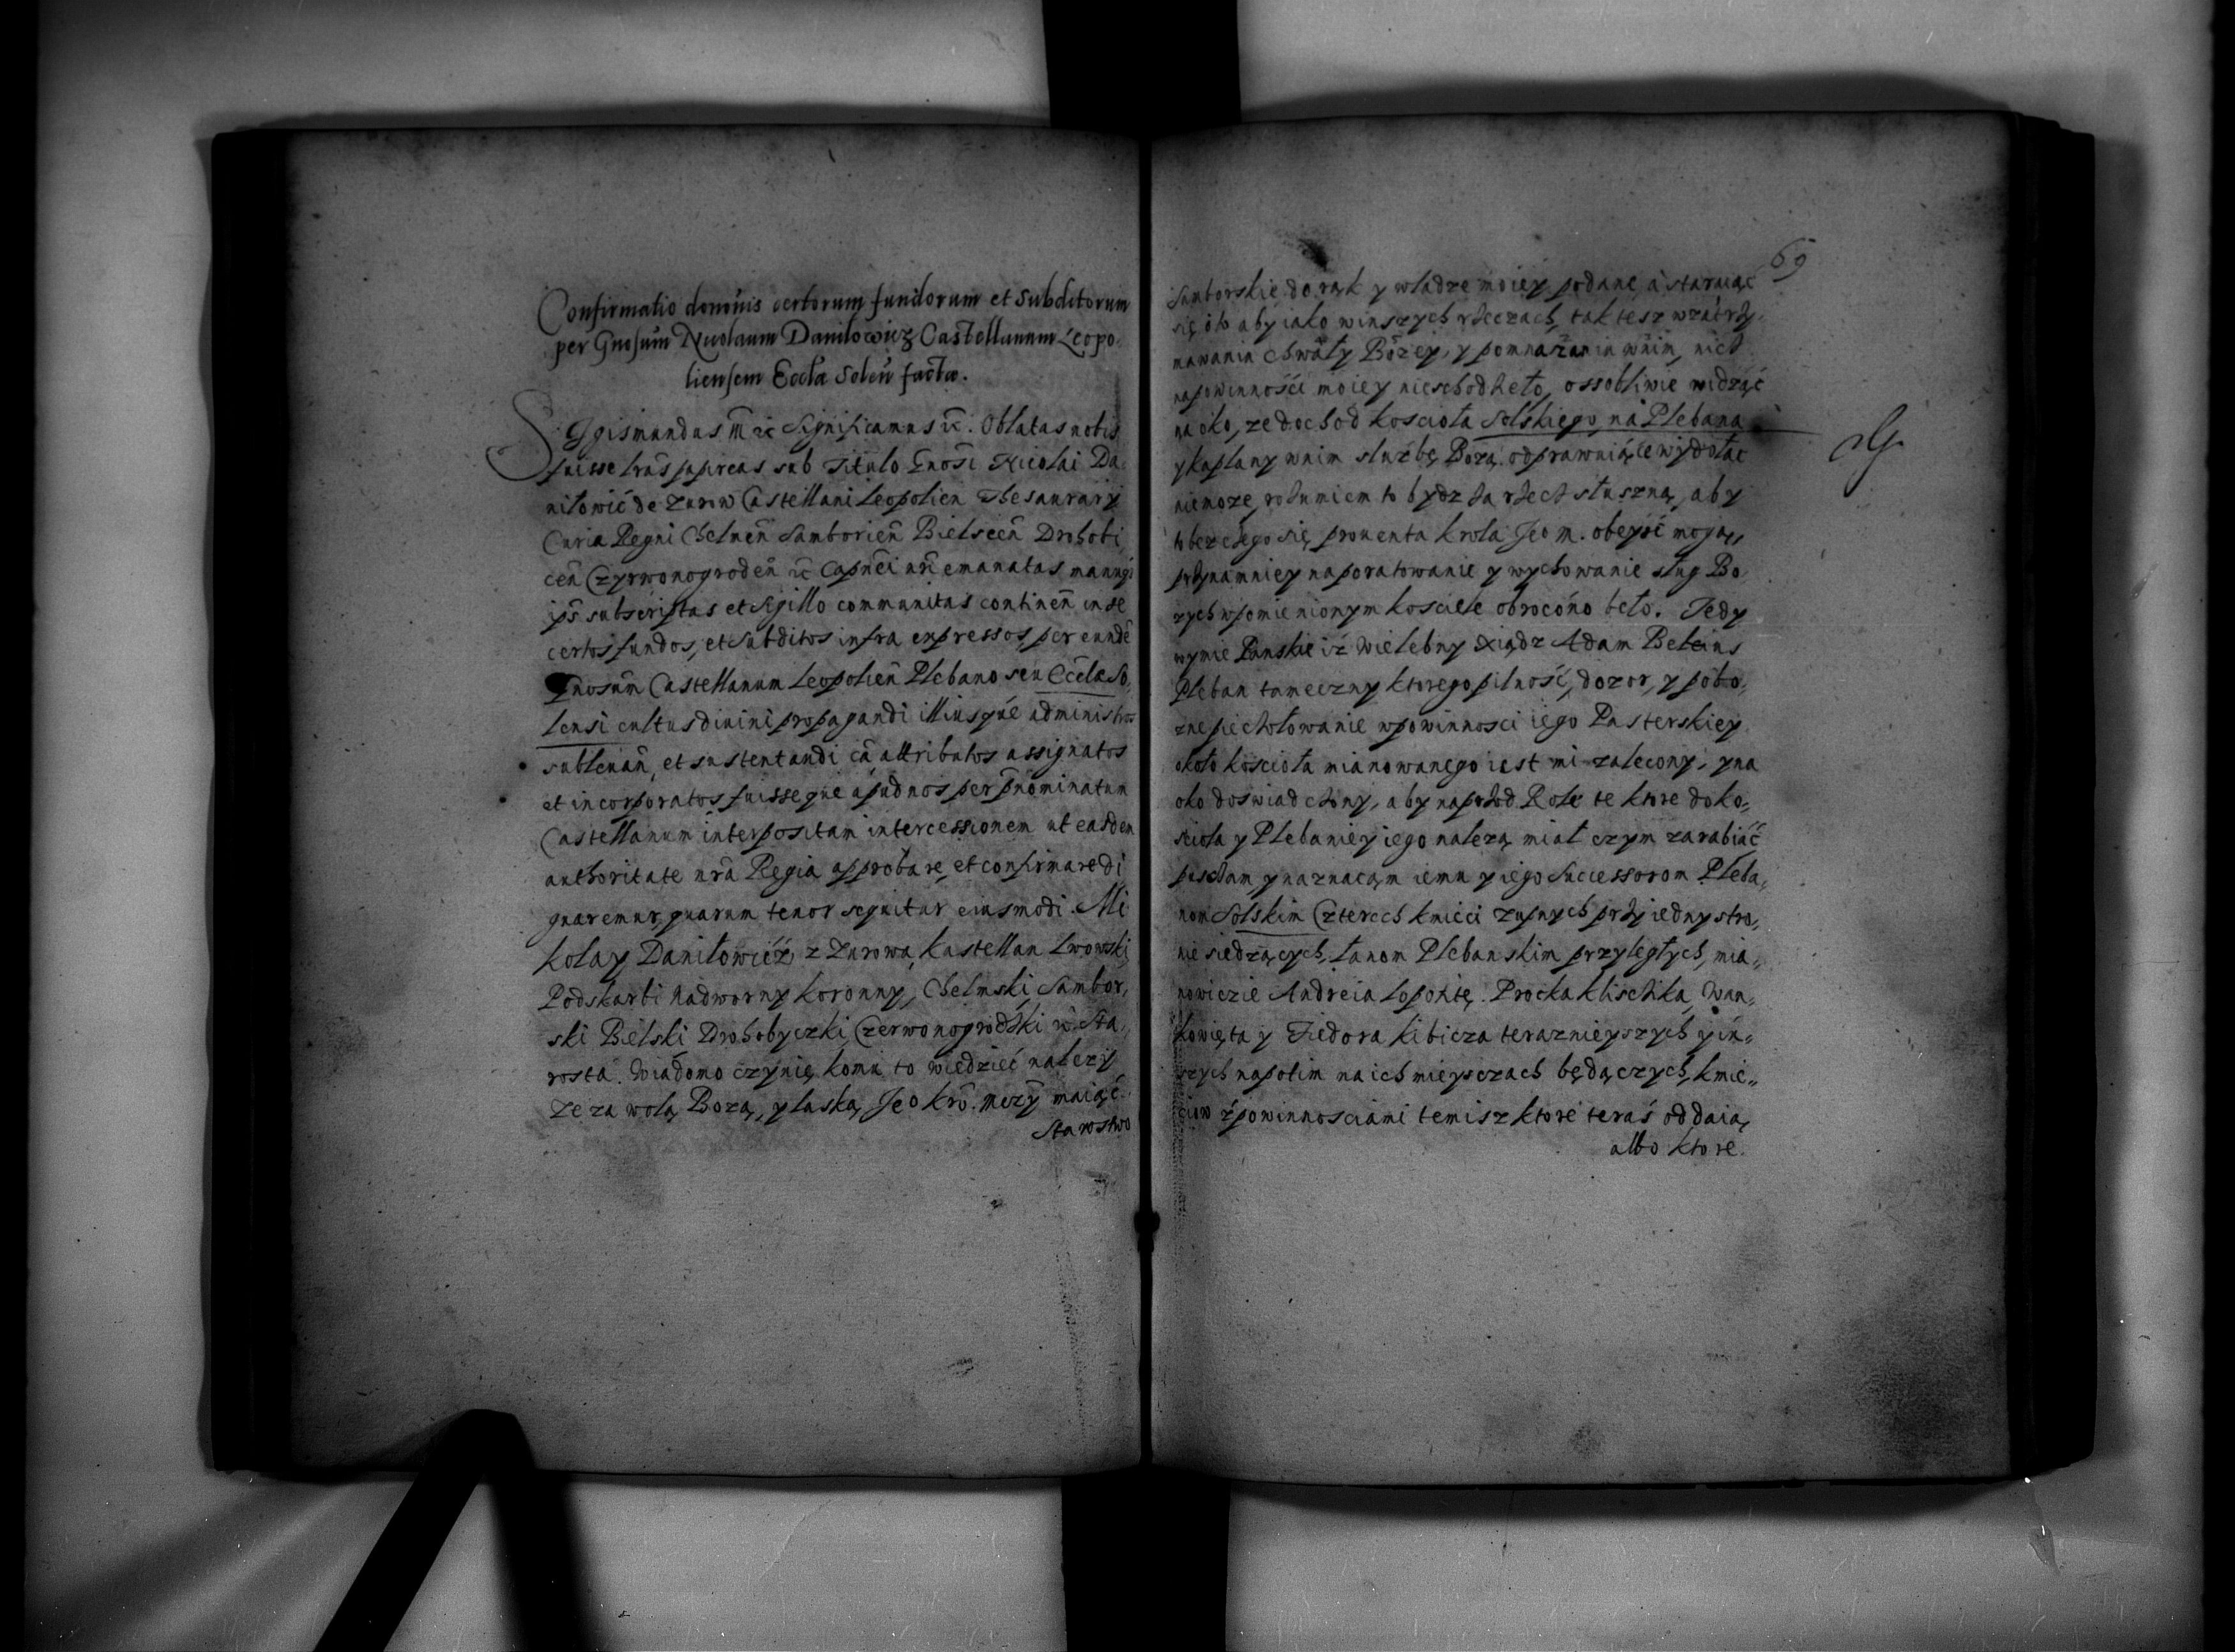 Confirmatio donōnis certorum fundorum et Subditorum
per Gnosum Nicolaum Danilowicz Castellanum Leopo-
liensem Eccl̄æ Soleń factæ.
Sigismundus III ɾc Significamus ɾc. Oblatas nobis
fuisse lrās papireas sub Titulo Gnosi Nicolai Da-
niłowić de Zurow Castellani Leopolien̄ Thesaurarij
Curiæ Regni Chelmen̄ Samborien̄ Bielscen̄ Drohobi,
cen̄ Czyrwonogroden̄ ɾc Capnei nr̄i emanatas manuq;
ips̄ subscriptas et Sigillo communitas continen̄ in se
certos fundos, et Subditos infra expressos, per eundē
Gnosum Castellanum Leopolien̄ Plebano seu Eccl̄æ So,
lensi cultus diuini propagandi illiusque administros
subleuan̄, et sustentandi cā attributos assignatos
et incorporatos fuisseque apud nos per pn̄ominatum
Castellanum interpositam intercessionem ut easdem
authoritate nr̄a Regia approbare, et confirmare di
gnaremur, quarum tenor sequitur eiusmodi. Mi
kołay Daniłowicź z Zurowa, kastellan Lwowski,
Podskarbi Nadworny koronny, Chelmski Sambor,
ski Bielski Drohobyczki Czerwonogrodski ɾc Sta,
rosta. Wiadomo czynię komu to wiedzieć nalezy
ze za wolą Bozą, y laską Jeo kro. mczy maiąc
Starostwo
69
Samborskie do rąk y władze moiey podane, a staraiąc
się o to aby iako w inszych rzeczach, tak tesz w zatrzy,
mawaniu chwały Bozey, y pomnazaniu w nim, nicz
na powinności moiey nieschodzieło, ossobliwie widząc
na oko, ze dochod kosciota Solskiego, na Plebana
y kaplany w nim sluzbę Bozą odprawuiące wydołac
niemoze, rozumiem to bydz za rzecz słuszną, aby
to bez czego się prouenta krola Jeo m. obeysć mogą,
przynamniey na poratowanie y wychowanie slug Bo,
zych wpomienionym kosciele obrocono beło. Tedy
wymie Panskie iz Wielebny Xiądz Adam Beleins
Pleban tameczny ktorego pilność, dozor, y pobo,
zne piechołowanie w powinnosci iego Pasterskiey
około kościoła mianowanego iest mi zalecony, y na
oko doswiadczony, aby naprzod Role te ktore do ko,
scioła y Plebaniey iego nalezą miał czym zarabiać
puszczam, y naznacąm iemu y iego Successorom Pleba,
nom Solskim Czterech kmieci zupnych przy iedny stro,
nie siedzących, łanom Plebanskim przyległych, mia,
nowiczie Andreia Lopotitę. Procka klischika, Wan,
kowięta y Fiedora kibicza terazniejszych y in,
szych napotim na ich mieysczach będączych, kmie,
ciow z powinnosciami temisz ktore teraś oddaią,
albo ktore.